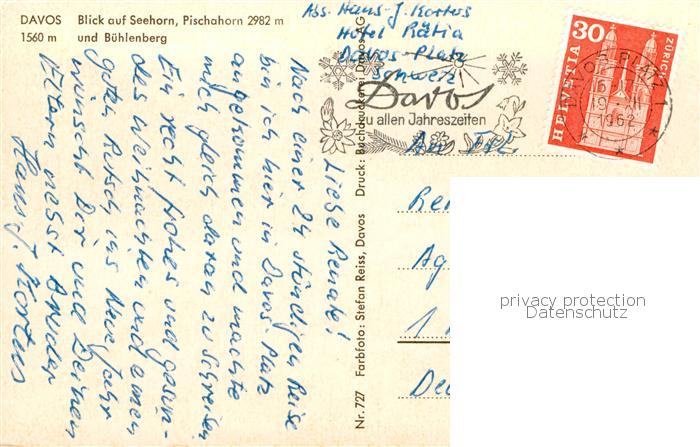 DAVOS Blick auf Seehorn, Pischahorn 2982 m
1560 m und Bühlenberg
Abs. Hans-J. Kortus
Hotel Rätia
Davos-Platz
Schweiz
Liebe Renate!
Nach einer 24 stündigen Reise
bin ich hier in Davos Platz
angekommen und machte
mich gleich daran zu schreiben
Ein recht frohes und gesun-
des Weihnachten und einen
guten Rutsch ins Neue Jahr
wünscht Dir und Deinen
Eltern nebst Bruder
Hans J. Kortus
Nr. 727 Farbfoto: Stefan Reiss, Davos Druck: Buchdruckerei Davos AG
Davos
zu allen Jahreszeiten
DAVOS PLATZ 1
1962
30
HELVETIA
ZÜRICH
An Frl.
Ren
Ag
1
Deu
privacy protection
Datenschutz